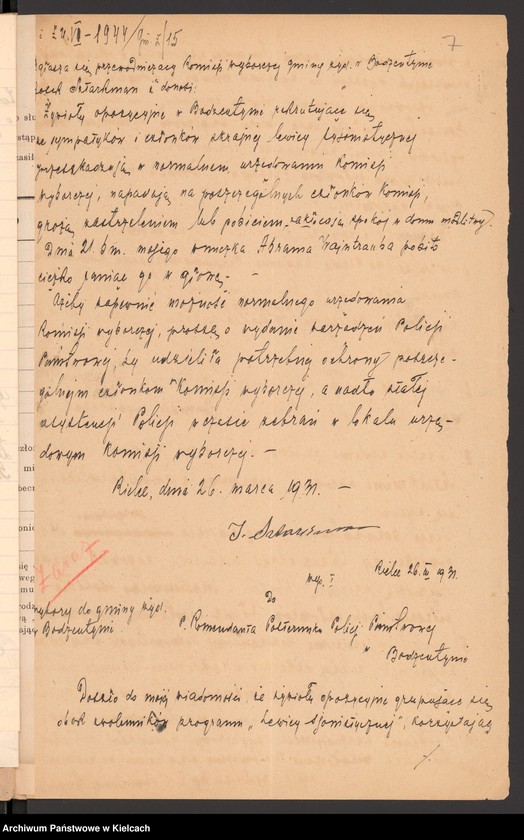 7
Zgłasza się przewodniczący Komisji wyborczej gminy żyd. w Bodzentynie
Josek Sztarkman i donosi:
Żywioły opozycyjne w Bodzentynie rekrutujące się
ze sympatyków i członków skrajnej lewicy sjonistycznej
przeszkadzają w normalnem urzędowaniu Komisji
wyborczej, napadają na poszczególnych członków Komisji,
grożą zastrzeleniem lub pobiciem, zakłócają spokój w domu modlitwy.
Dnia 21. bm. mojego wnuczka Abrama Wajntrauba pobito
ciężko raniąc go w głowę. -
Ażeby zapewnić możność normalnego urzędowania
Komisji wyborczej, proszę o wydanie zarządzeń Policji
Państwowej, by udzieliła potrzebnej ochrony poszcze-
gólnym członkom Komisji wyborczej, a nadto stałej
asystencji Policji w czasie zebrań w lokalu urzę-
dowym Komisji wyborczej. -
Kielce, dnia 26. marca 1931. -
Kielce 26. III 1931.
Do
wybory do gminy żyd.
Bodzentynie
P. Komendanta Posterunku Policji Państwowej
w Bodzentynie
Doszło do mojej wiadomości, że żywioły opozycyjne grupujące się
obok zwolenników programu „Lewicy sjonistycznej", korzystając
Archiwum Państwowe w Kielcach